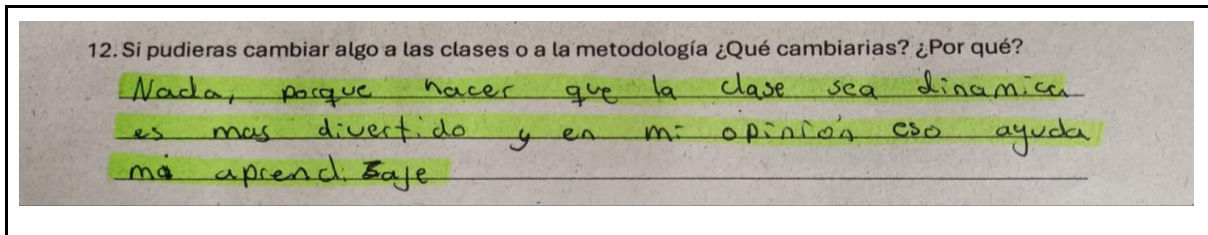 12. Si pudieras cambiar algo a las clases o a la metodología ¿Qué cambiarias? ¿Por qué?
Nada, porque hacer que la clase sea dinamica
es mas divertido y en mi opinión eso ayuda
mi aprendizaje